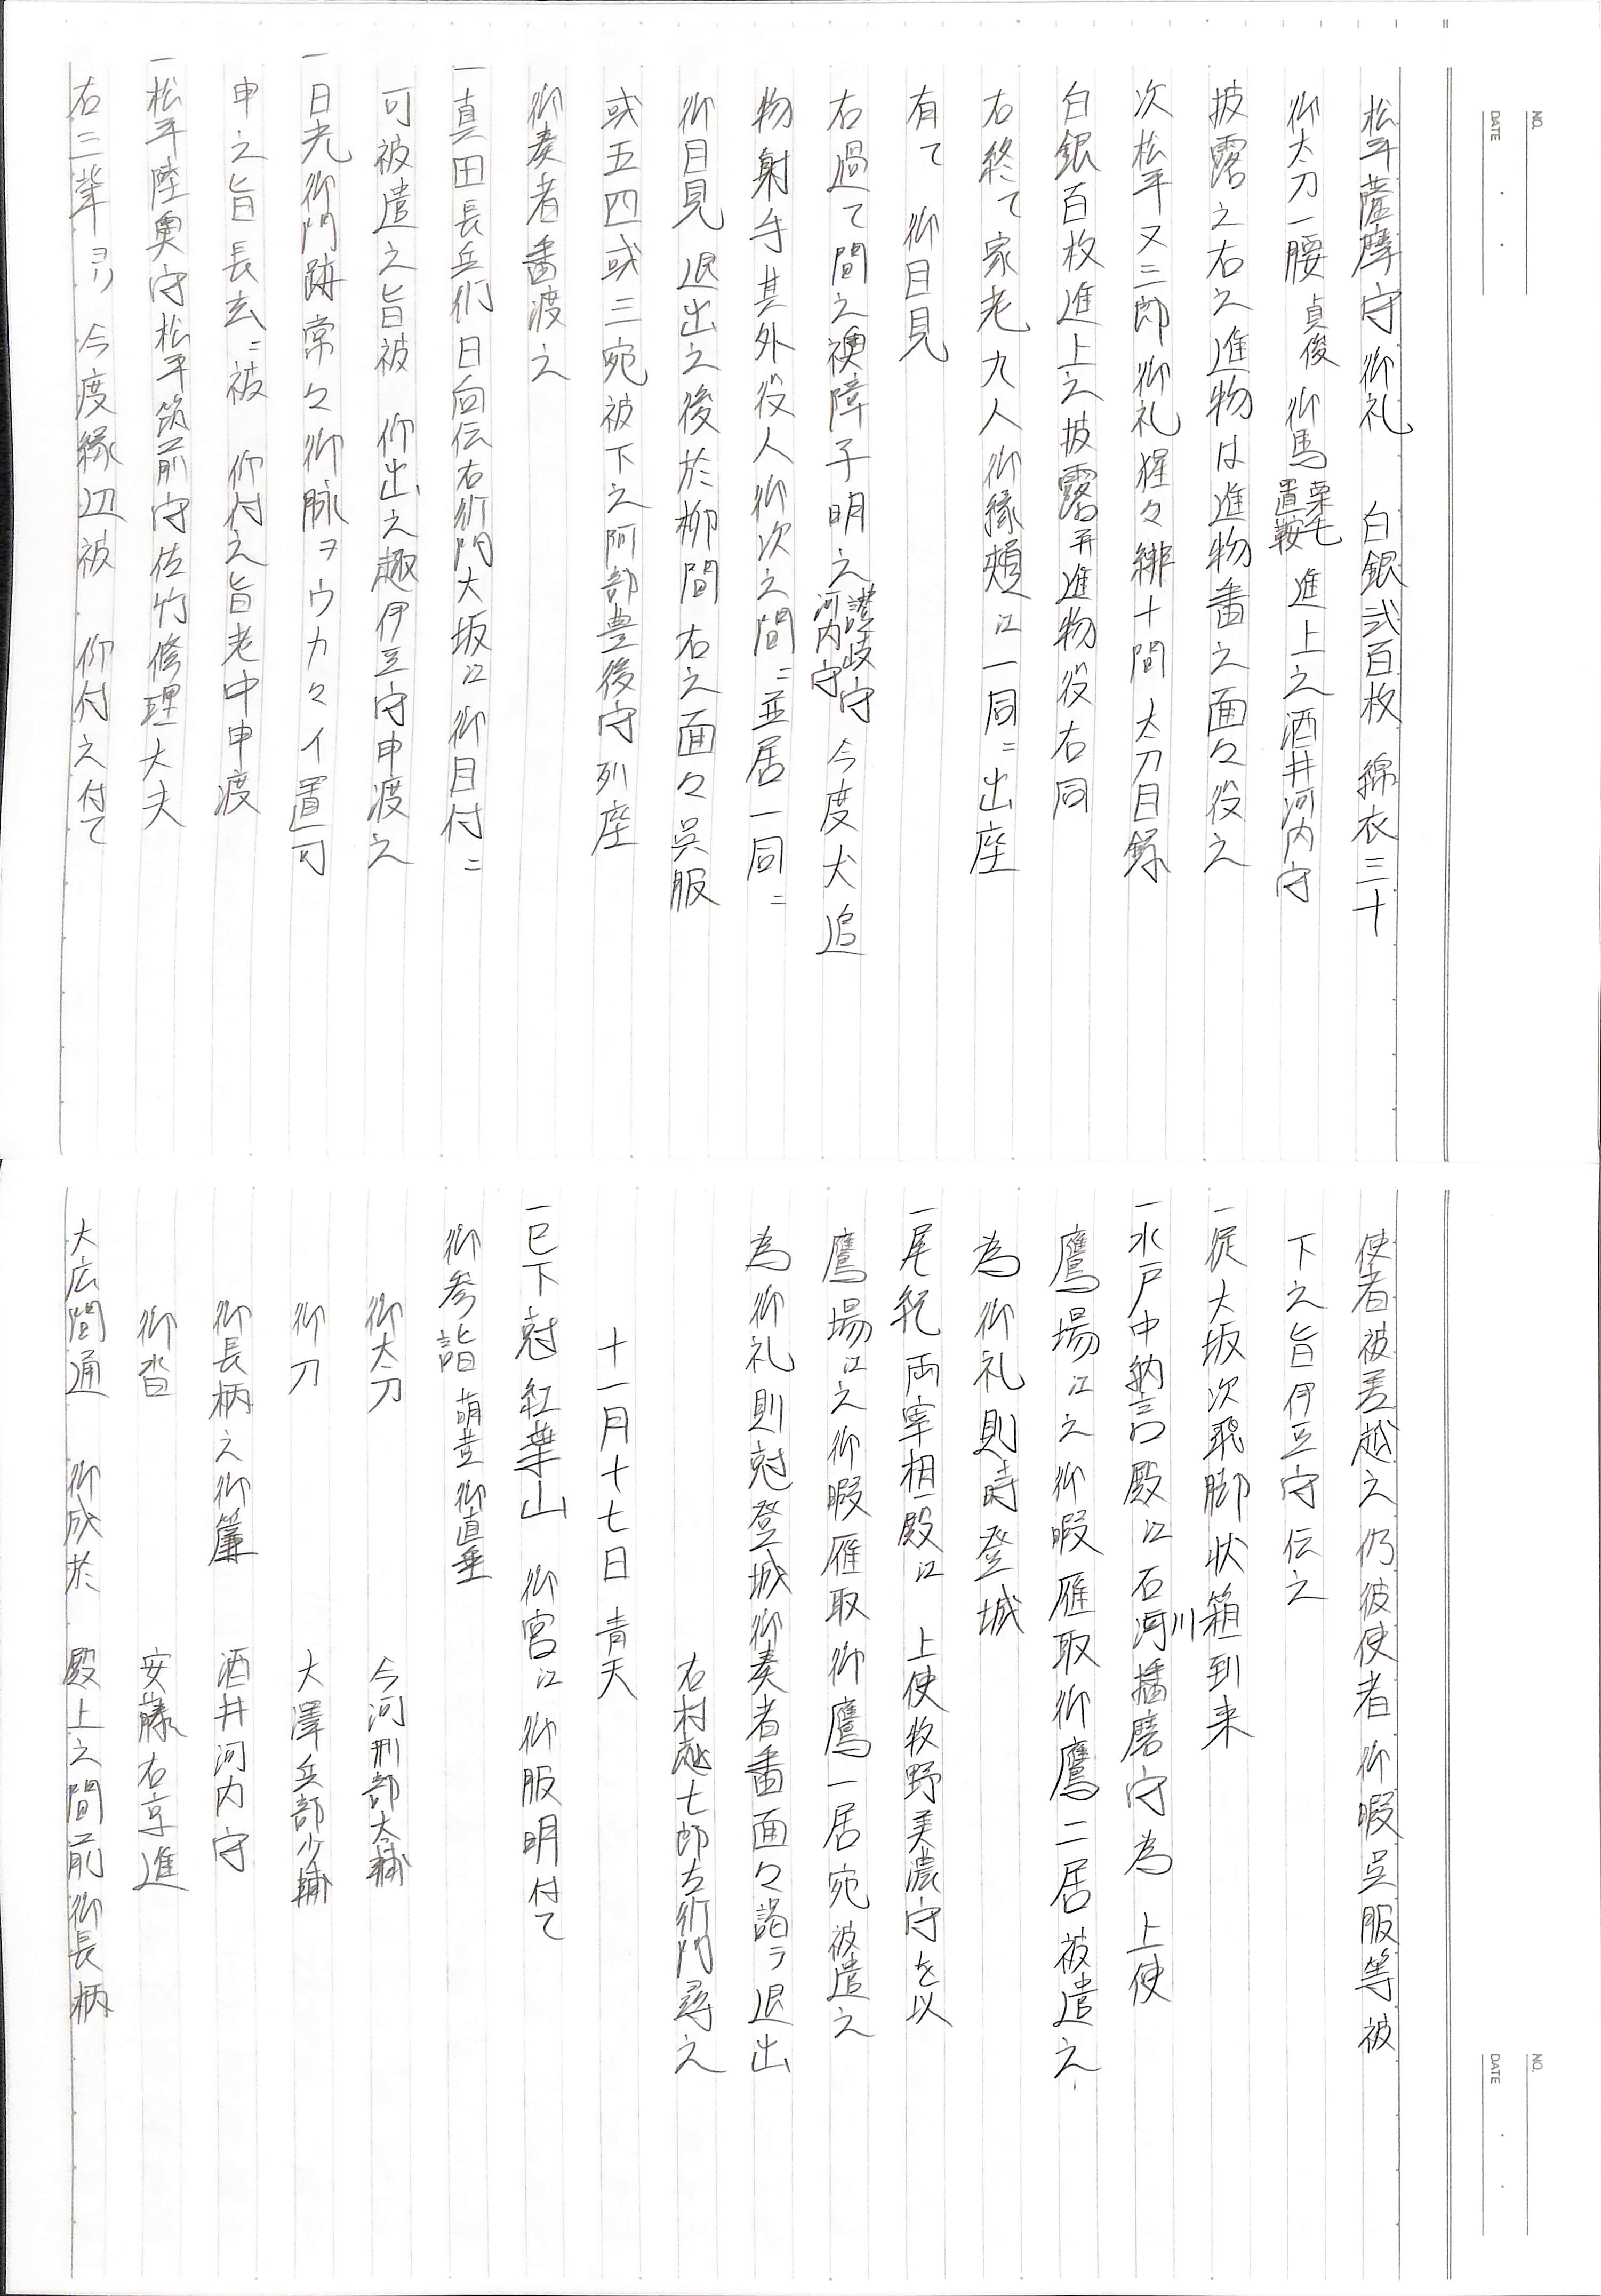 NO.
DATE
松平薩摩守御礼　白銀弐百枚　綿衣三十
御太刀一腰 貞俊　御馬 栗毛置鞍 進上之酒井河内守
披露之右之進物は進物番之面々役之
次松平又三郎御礼猩々緋十間　太刀目録
白銀百枚進上之披露并進物役右同
右終て家老九人御縁頬江一同ニ出座
有て　御目見
右過て間之襖障子明之 讃岐守河内守 今度犬追
物射手其外役人御次之間ニ並居一同ニ
御目見退出之後於柳間右之面々呉服
或五四或三宛被下之阿部豊後守列座
御奏者番渡之
一真田長兵衛日向伝右衛門大坂江御目付ニ
可被遣之旨被　仰出之趣伊豆守申渡之
一日光御門跡常々御脈ヲウカヽイ置可
申之旨長玄ニ被　仰付之旨老中申渡
一松平陸奥守松平筑前守佐竹修理大夫
右三輩ヨリ今度縁辺被　仰付之付て
NO.
DATE
使者被差越之仍彼使者御暇呉服等被
下之旨伊豆守伝之
一従大坂次飛脚状箱到来
一水戸中納言殿江石河川播磨守為　上使
鷹場江之御暇雁取御鷹二居被遣之
為御礼則時登城
一尾紀両宰相殿江　上使牧野美濃守を以
鷹場江之御暇雁取御鷹一居宛被遣之
為御礼則尅登城御奏者番面々謁ヲ退出
右村越七郎左衛門尋之
十一月十七日　青天
一巳下尅紅葉山　御宮江御服明付て
御参詣 萌黄御直垂
御太刀　今河刑部大輔
御刀　大澤兵部少輔
御長柄之御簾　酒井河内守
御沓　安藤右京進
大広間通　御成於　殿上之間前御長柄